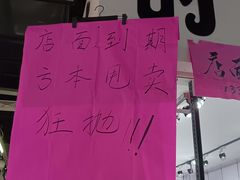 的
店面到期
亏本甩卖
狂抛!!!
店面
133